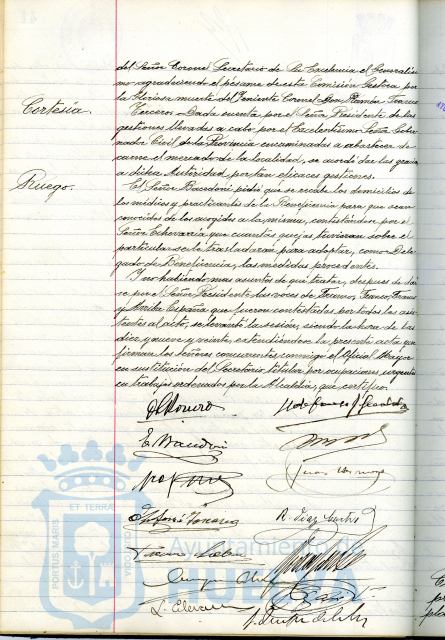 del Señor Coronel Secretario de Su Excelencia el Generalísi-
mo agradeciendo el pésame de esta Comisión Gestora por
la gloriosa muerte del Teniente Coronel Don Ramón Franco.
Cortesía.
Tercero. Dada cuenta por el Señor Presidente de las
gestiones llevadas a cabo por el Excelentísimo Señor Gober-
nador Civil de la Provincia encaminadas a abastecer de
carne el mercado de la localidad, se acordó dar las gracias
a dicha Autoridad por tan eficaces gestiones.
Ruego.
El Señor Bauedoni pidió que se recabe los domicilios de
los médicos y practicantes de la Beneficencia para que sean
conocidos de los acogidos a la misma, contestándole por el
Señor Echevarría que cuantas quejas tuvieran sobre el
particular se le trasladaran para adoptar, como Dele-
gado de Beneficencia, las medidas procedentes.
Y no habiendo mas asuntos de que tratar, despues de dar-
se por el Señor Presidente las voces de Franco, Franco, Franco
y Arriba España que fueron contestadas por todos los asis-
tentes al acto, se levantó la sesión, siendo la hora de las
diez y nueve y veinte, extendiéndose la presente acta que
firman los señores concurrentes conmigo el Oficial Mayor
en sustitución del Secretario titular por ocupaciones urgentes
en trabajos ordenados por la Alcaldía, que certifico.
R. Diaz
PORTUS MARIS ET TERRAE CUSTODIA
Ayuntamiento de
HUELVA